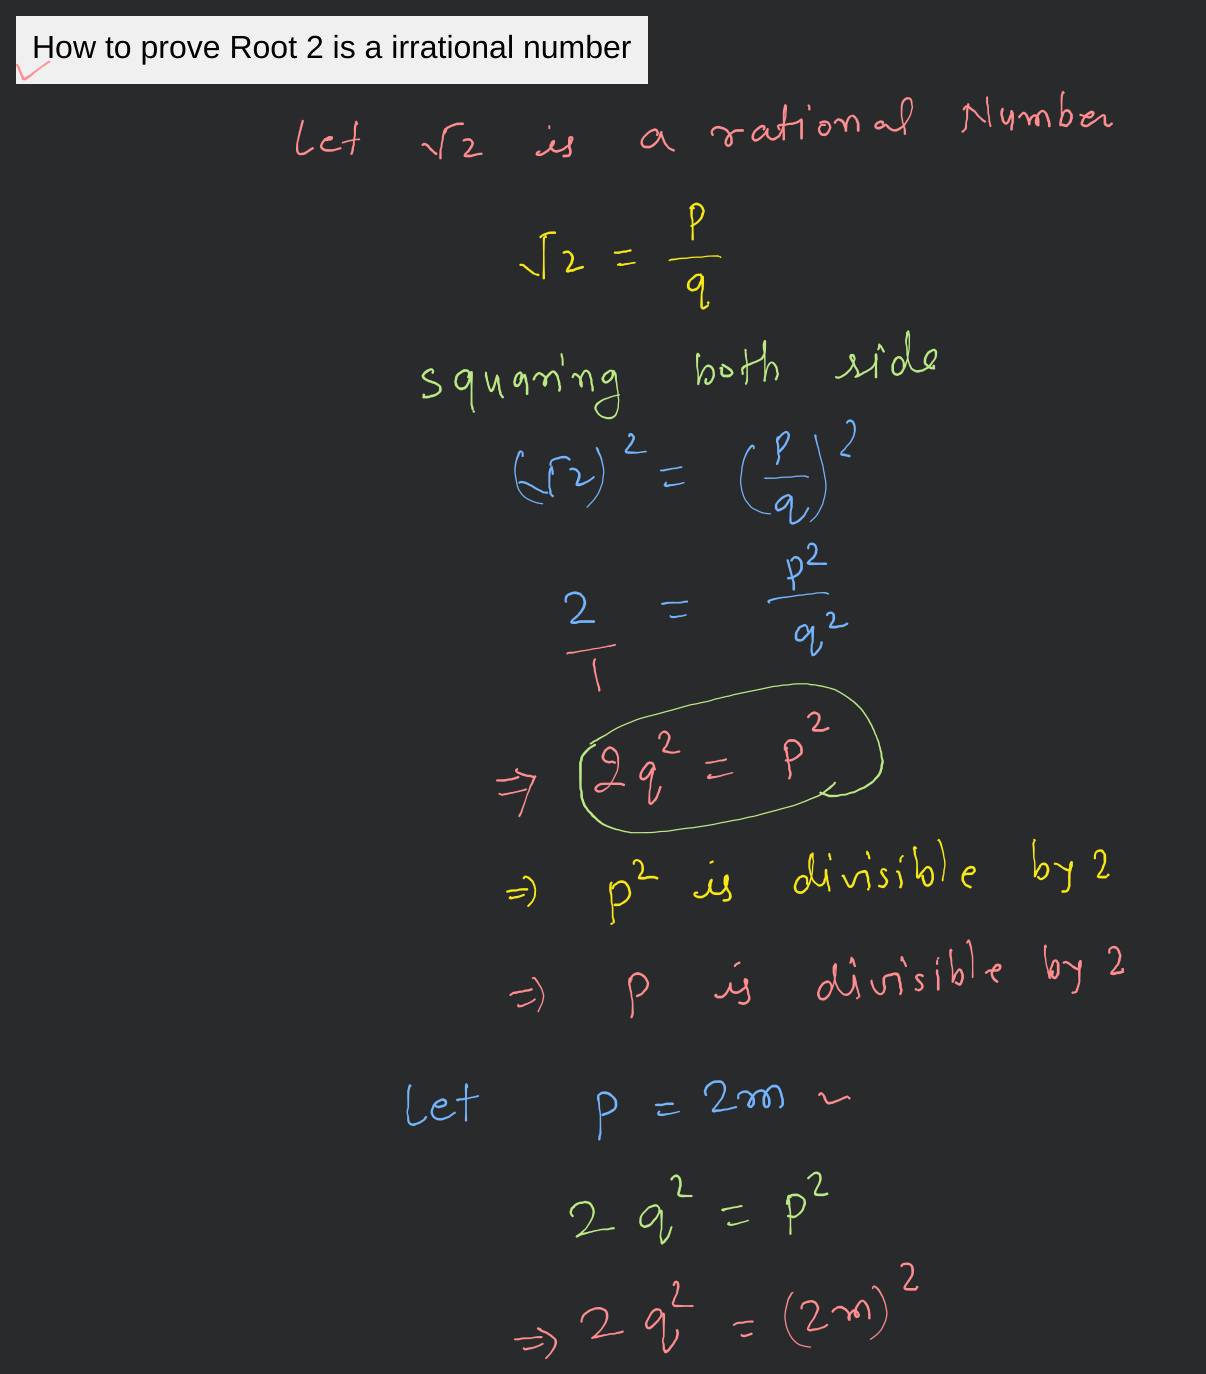 How to prove Root 2 is a irrational number
Let √2 is a rational Number
√2 = p/q
squaring both side
(√2)² = (p/q)²
2/1 = p²/q²
⇒ 2q² = p²
⇒ p² is divisible by 2
⇒ p is divisible by 2
Let p = 2m
2q² = p²
⇒ 2q² = (2m)²